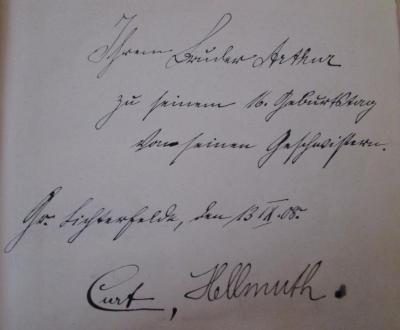 Ihrem Bruder Arthur
zu seinem 16. Geburtstag
von seinen Geschwistern.
Gr. Lichterfelde, den 13 IX. 08.
Curt, Hellmuth.